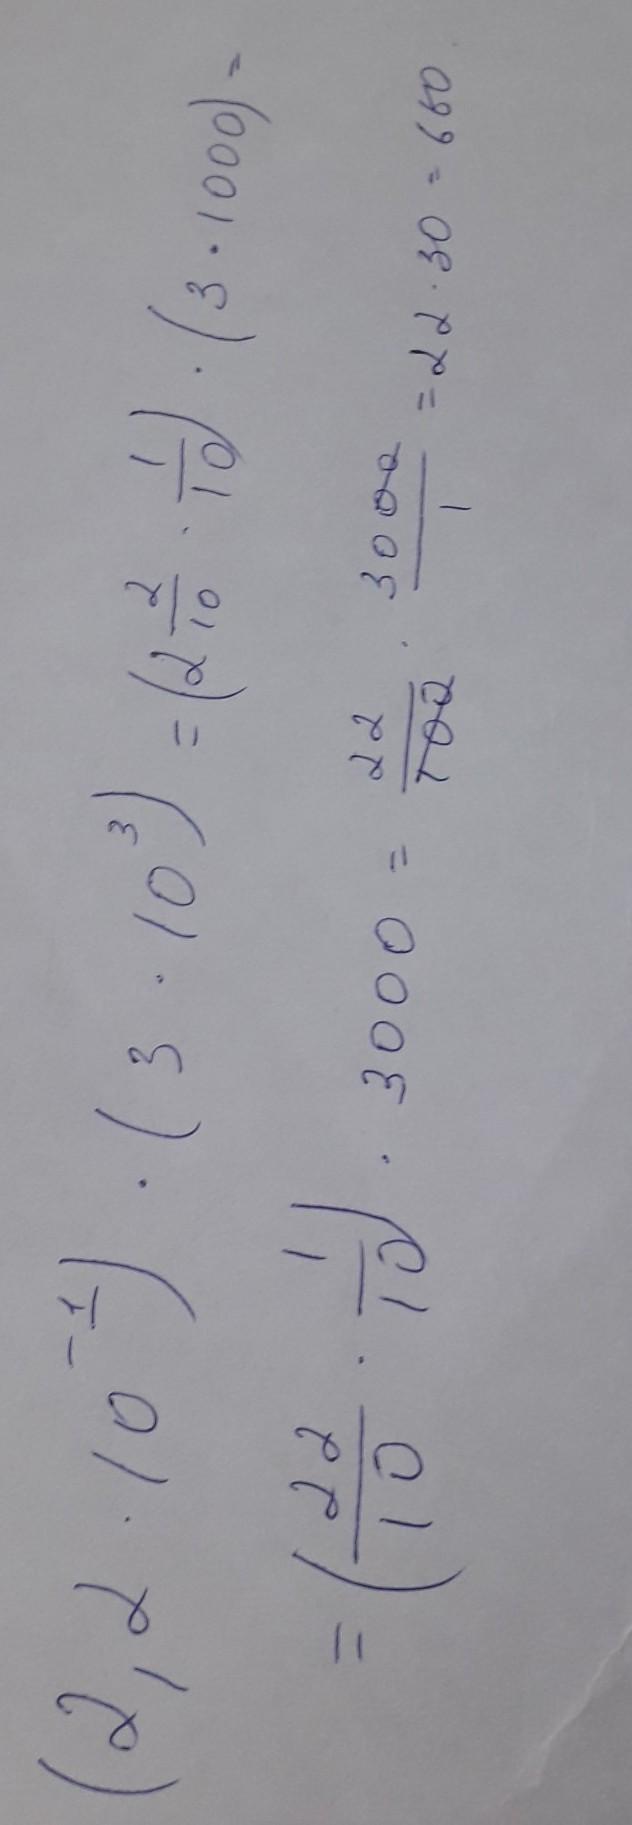 (2,2 · 10⁻¹) · (3 · 10³) = (2 2/10 · 1/10) · (3 · 1000) =
= (22/10 · 1/10) · 3000 = 22/100 · 3000/1 = 22 · 30 = 660